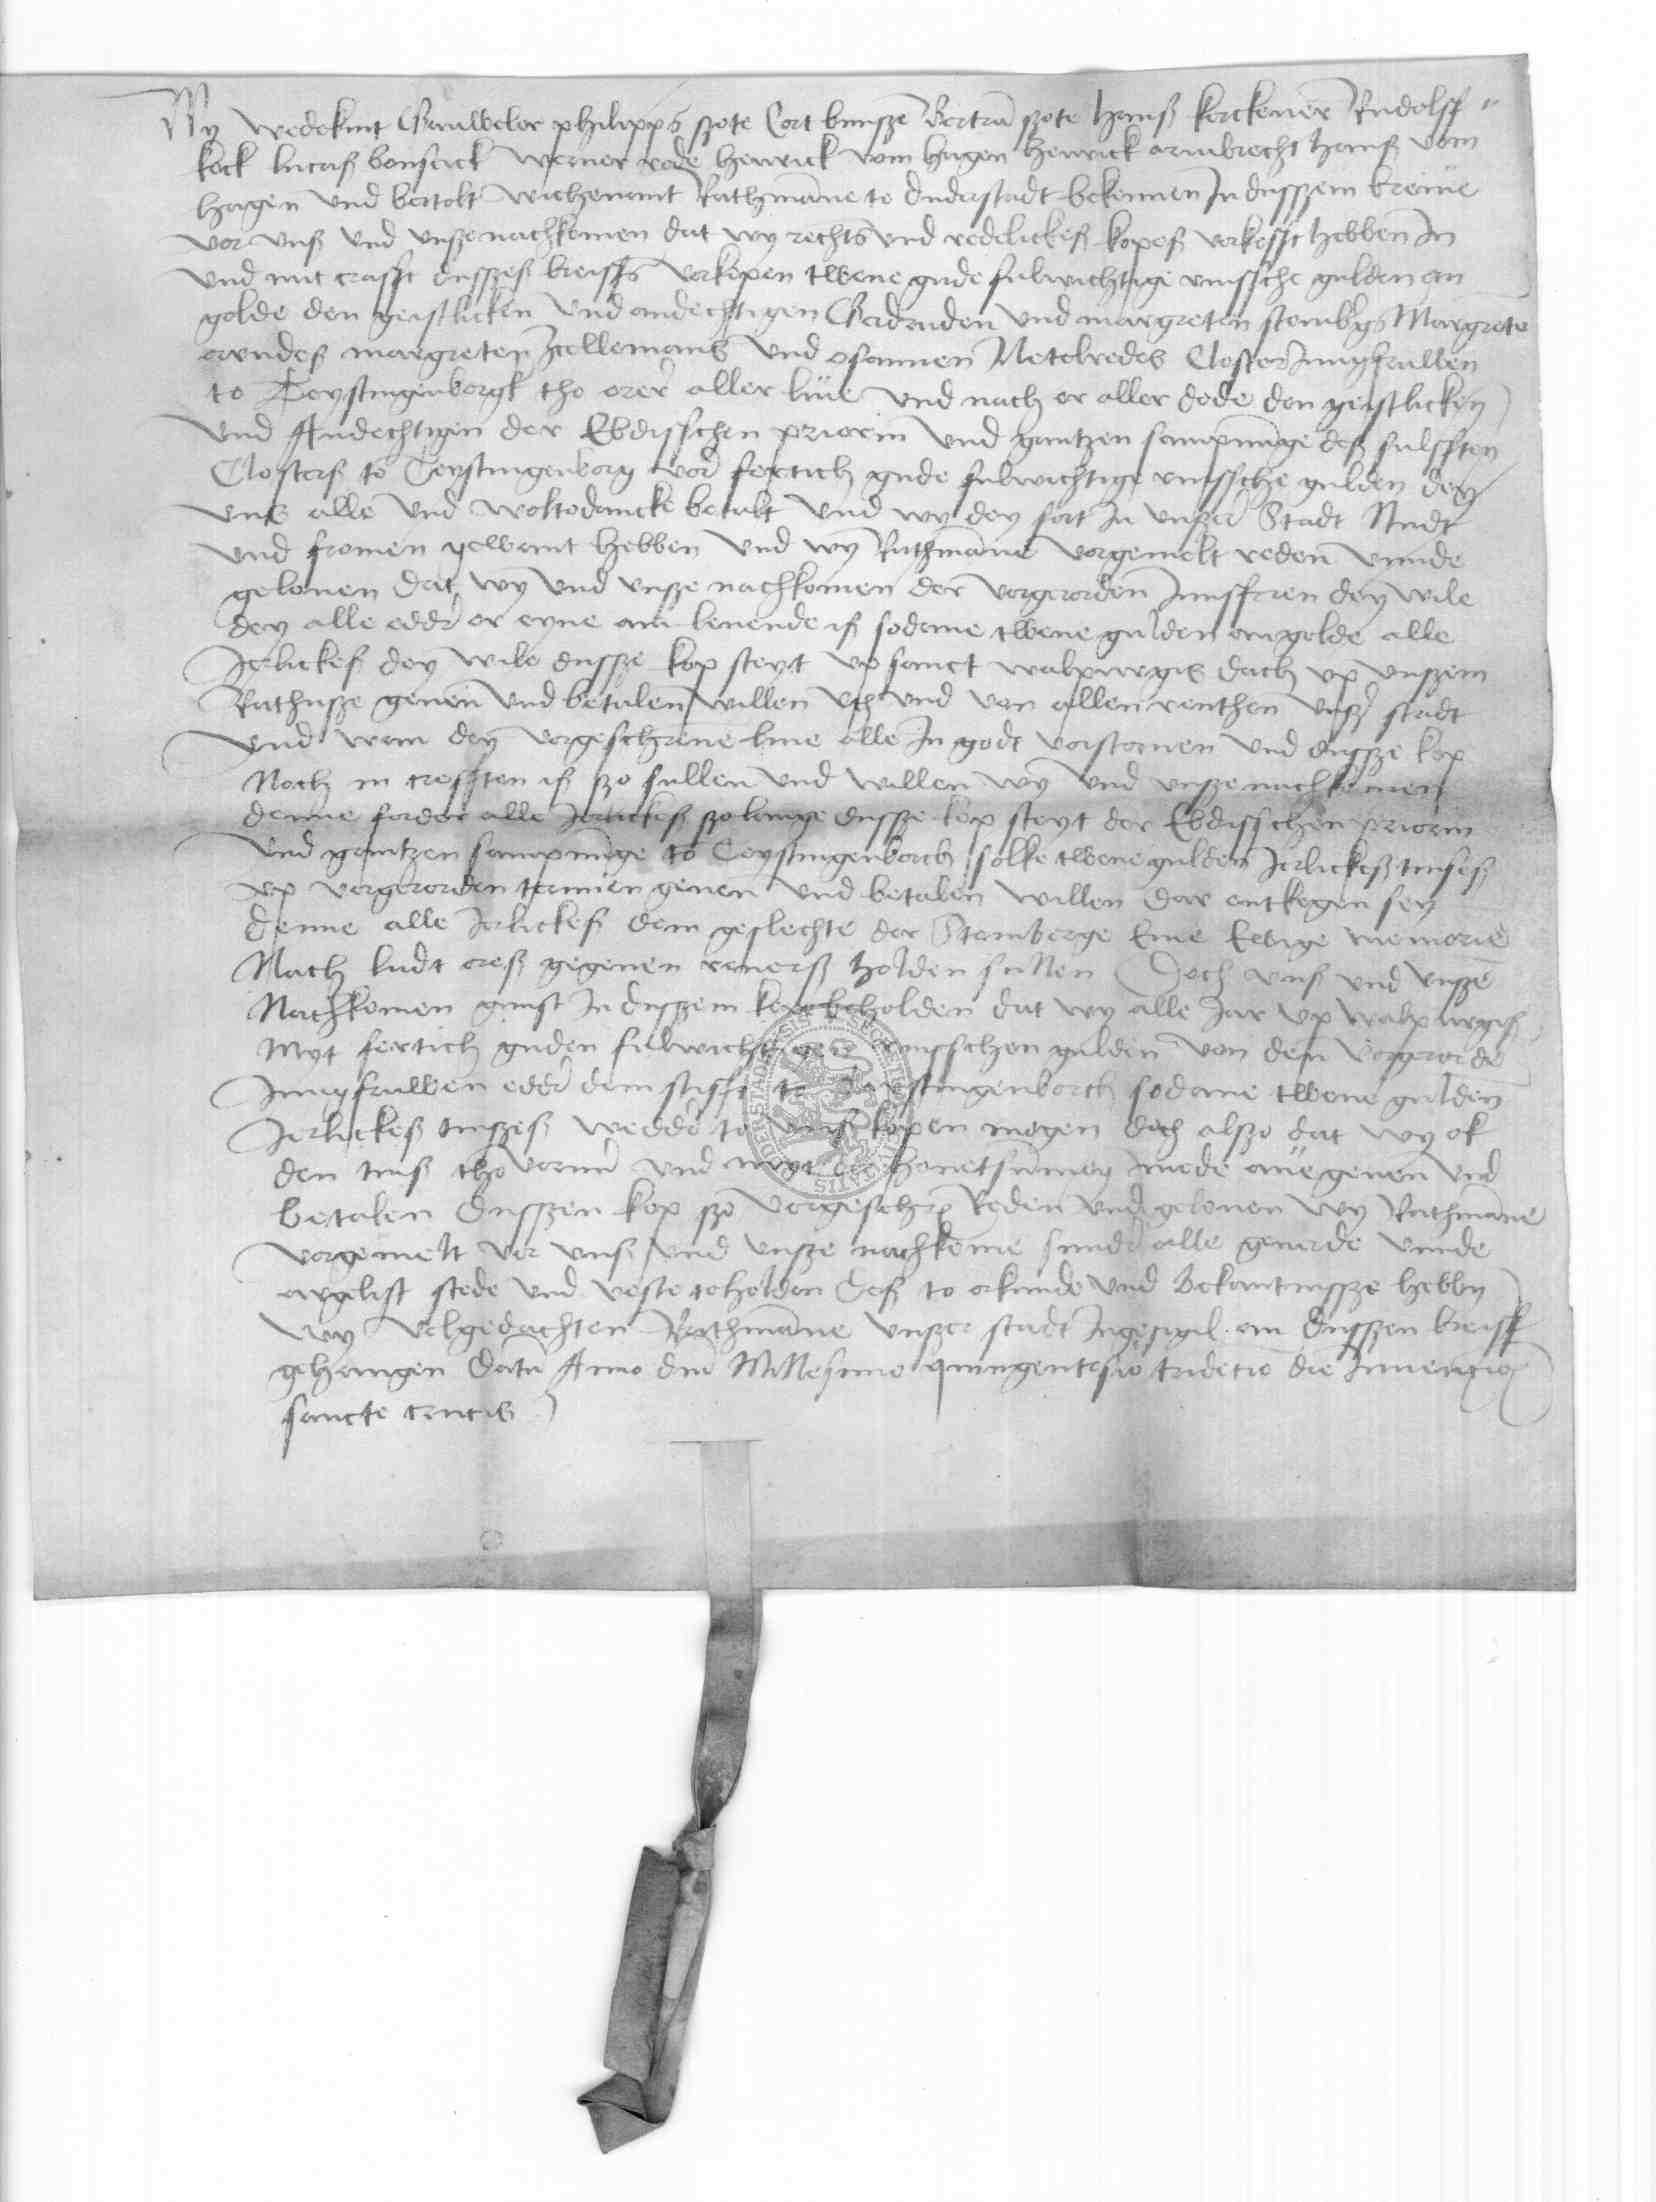 Wy wedekint Gauweler philipps szote Cort bunszē Bertrā szote hanß kerckener Rudolff
kock lucaß bonsack werner rode henrick vom hagen henrick armbrecht hanß vom
hagen vnd bertolt wichenant Rathmāne to duderstadt bekennen In dusszem breiue
vor vnß vnd vnsze nachkomen dat wy rechts vnd redelickeß kopeß vorkofft hebben In
vnd mit crafft dusszeß breiffs vorkopen twene gude fulwichtige rinssche gulden an
golde den geistlicken vnd andechtigen Gerdruden vnd margreten stembgs Margrete
arndeß margreten zellemans vnd osannen Netelredes Closter Jungfruwen
to Teystingenborgk tho orer aller liue vnd nach er aller dode den geistlicken
vnd Andechtigen der Ebdisschen priorin vnd gantzen sampnūge deß sulfften
Closters to Teystingenborg vor fertich gude fulwichtige rinssche gulden dey
vns alle vnd wol to dancke betalt vnd wy dey fort In vnszer Stadt Nudt
vnd fromen gewant hebben vnd wy Rathmāne vorgemelt reden vnnde
gelouen dat wy vnd vnsze nachkomen der vorgerorden Junffren dey wile
dey alle edder er eyne am leuende iß sodane twene gulden am golde alle
Jerlickeß dey wile dussze kop steyt vp sanct walpurgis dach vp vnszem
Rathusze geuen vnd betalen willen vth vnd van allen renthen vnsz stadt
vnd wan dey vorgeschreue liue alle In godt vorstoruen vnd dussze kop
Noch in crefften iß szo sullen vnd willen wy vnd vnsze nachkomen
denne forder alle Jerlickeß szo lange dussze kop steyt der Ebdisschen priorin
vnd gantzen sampnūge to Teystingenborch solke twene gulden Jerlickeß tinseß
vp vorgerorden termien geuen vnd betalen willen dar entkegen sey
denne alle Jerlickeß dem geslechte der Stemberge Eine Ewige memorie
Nach ludt oreß gegeuen reuerß holden sullen Doch vnß vnd vnsze
Nachkomen gunst In dusszem kope beholden dat wy alle Jar vp walpurgiß
Myt fertich guden fulwichtigen rinsschen gulden von den vorgerorde
Jungfruwen edder dem stifft to Teystingenborch sodane twene gulden
Jerlickeß tinszeß wedder to vnß kopen mogen doch alszo dat wy ok
den tinß tho vornn vnd myt der houetsummen mede geuen vnd
betalen Dusszen kop szo vorgeschr Reden vnd gelouen wy Rathmāne
vorgemelt vor vnß vnd vnsze nachkome sunder alle geuerde vnnde
argelist stede vnd veste to holden Deß to orkunde vnd Bekantnissze hebbn
wy velgedachten Rathmāne vnszer stadt Ingesigil an dusszen breiff
gehangen Datū Anno dni Millesimo quingentesīo tricesīo die Inuencio
sancte crucis